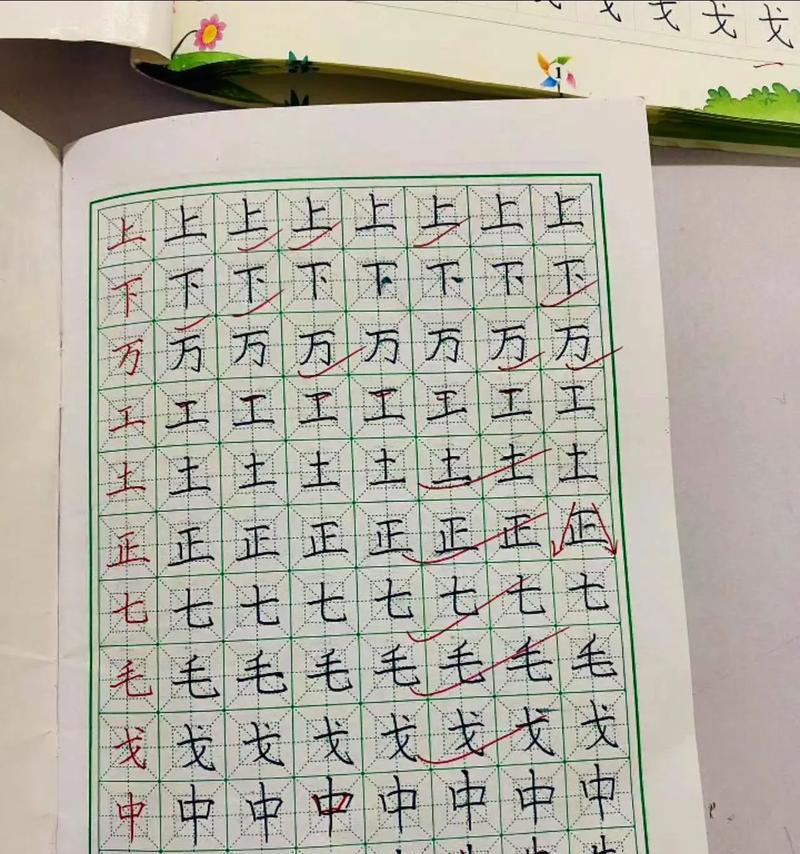 戈 戈 戈
1
上 上 上 上 上 上 上 上
下 下 下 下 下 下 下 下
万 万 万 万 万 万 万 万
工 工 工 工 工 工 工 工
土 土 土 土 土 土 土 土
正 正 正 正 正 正 正 正
七 七 七 七 七 七 七 七
毛 毛 毛 毛 毛 毛 毛 毛
戈 戈 戈 戈 戈 戈 戈 戈
中 中 中 中 中 中 中 中